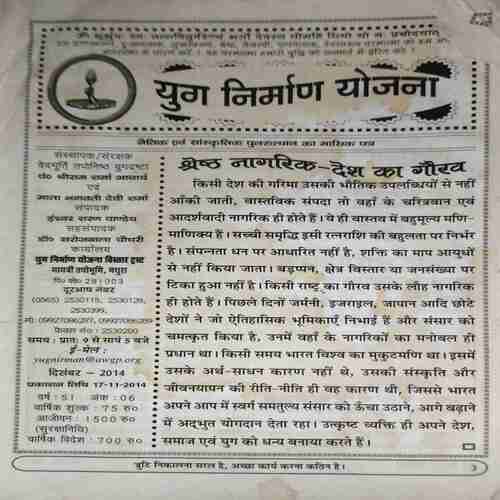 ॐ भूर्भुवः स्वः तत्सवितुर्वरेण्यं भर्गो देवस्य धीमहि धियो यो नः प्रचोदयात्
युग निर्माण योजना
नैतिक एवं सांस्कृतिक पुनरुत्थान का मासिक पत्र
संस्थापक/संरक्षक
वेदमूर्ति तपोनिष्ठ युगदृष्टा
पं० श्रीराम शर्मा आचार्य
एवं
माता भगवती देवी शर्मा
संपादक
ईश्वर शरण पाण्डेय
सहसंपादक
डॉ० सरोजबाला चौधरी
कार्यालय
युग निर्माण योजना विस्तार ट्रस्ट
गायत्री तपोभूमि, मथुरा
पि० को० 281003
दूरभाष नंबर
(0565) 2530115, 2530128,
2530399,
मो०: 09927086287, 09927086289
फैक्स नं० : 2530200
समय : प्रातः 9 से सायं 5 बजे
ई-मेल :
yugnirman@awgp.org
दिसंबर – 2014
प्रकाशन तिथि 17-11-2014
वर्ष : 51 अंक : 06
वार्षिक शुल्क : 75 रु०
आजीवन : 1500 रु०
(सुरक्षानिधि)
वार्षिक विदेश : 700 रु०
श्रेष्ठ नागरिक–देश का गौरव
किसी देश की गरिमा उसकी भौतिक उपलब्धियों से नहीं
आँकी जाती, वास्तविक संपदा तो वहाँ के चरित्रवान एवं
आदर्शवादी नागरिक ही होते हैं। ये ही वास्तव में बहुमूल्य मणि-
माणिक्य हैं। सच्ची समृद्धि इसी रत्नराशि की बहुलता पर निर्भर
है। संपन्नता धन पर आधारित नहीं है, शक्ति का माप आयुधों
से नहीं किया जाता। बड़प्पन, क्षेत्र विस्तार या जनसंख्या पर
टिका हुआ नहीं है। किसी राष्ट्र का गौरव उसके लौह नागरिक
ही होते हैं। पिछले दिनों जर्मनी, इजराइल, जापान आदि छोटे
देशों ने जो ऐतिहासिक भूमिकाएँ निभाई हैं और संसार को
चमत्कृत किया है, उनमें वहाँ के नागरिकों का मनोबल ही
प्रधान था। किसी समय भारत विश्व का मुकुटमणि था। इसमें
उसके अर्थ-साधन कारण नहीं थे, उसकी संस्कृति और
जीवनयापन की रीति-नीति ही वह कारण थी, जिससे भारत
अपने आप में स्वर्ग समतुल्य संसार को ऊँचा उठाने, आगे बढ़ाने
में अद्भुत योगदान देता रहा। उत्कृष्ट व्यक्ति ही अपने देश,
समाज एवं युग को धन्य बनाया करते हैं।
त्रुटि निकालना सरल है, अच्छा कार्य करना कठिन है।
3